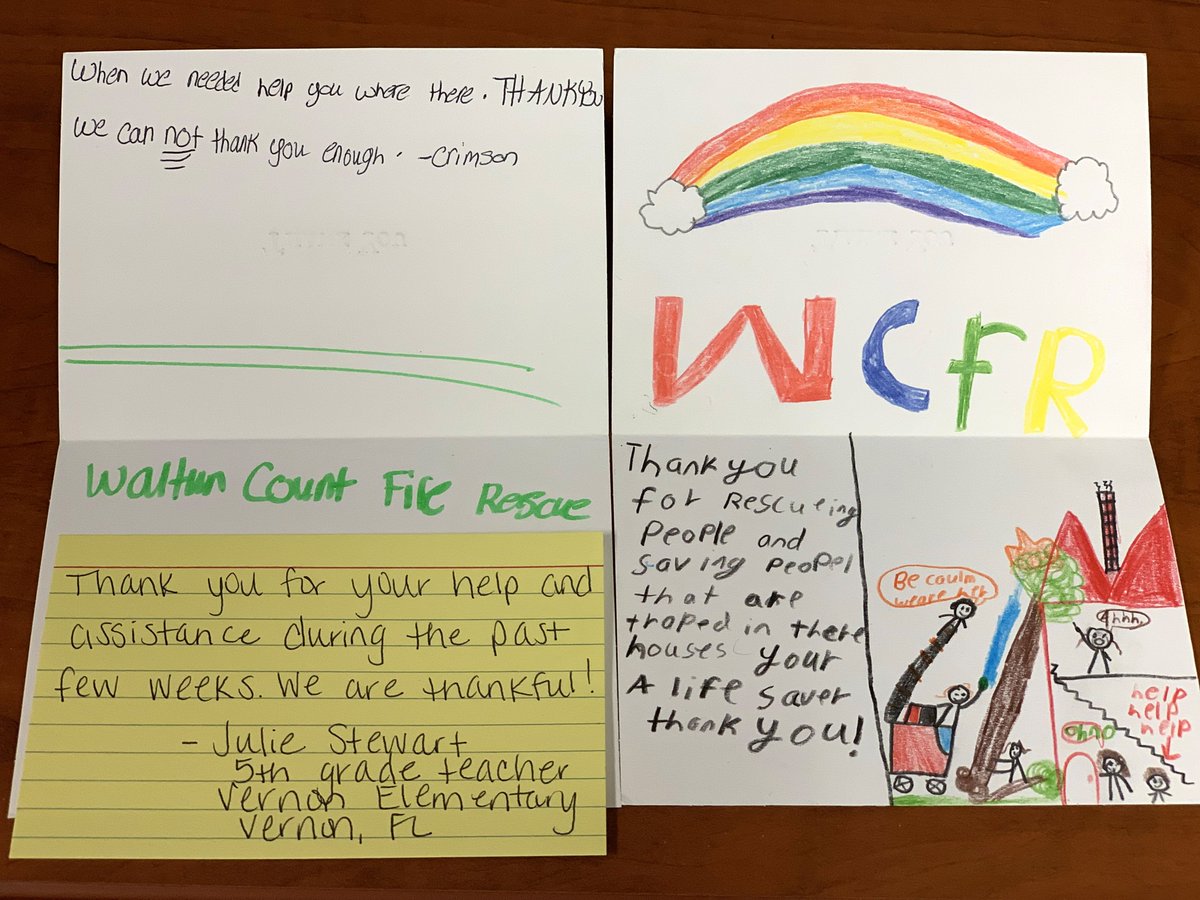 When we needed help you where there. THANKYOU
we can not thank you enough. -Crimson
Waltun Count Fire Rescue
Thank you for your help and
assistance during the past
few weeks. We are thankful!
- Julie Stewart
5th grade teacher
Vernon Elementary
Vernon, FL
WCFR
Thank you
for Rescueing
People and
saving peopel
that are
traped in there
houses your
A life saver
thank you!
Be caulm
weare her
Ahhh,
help
help
help
ohno